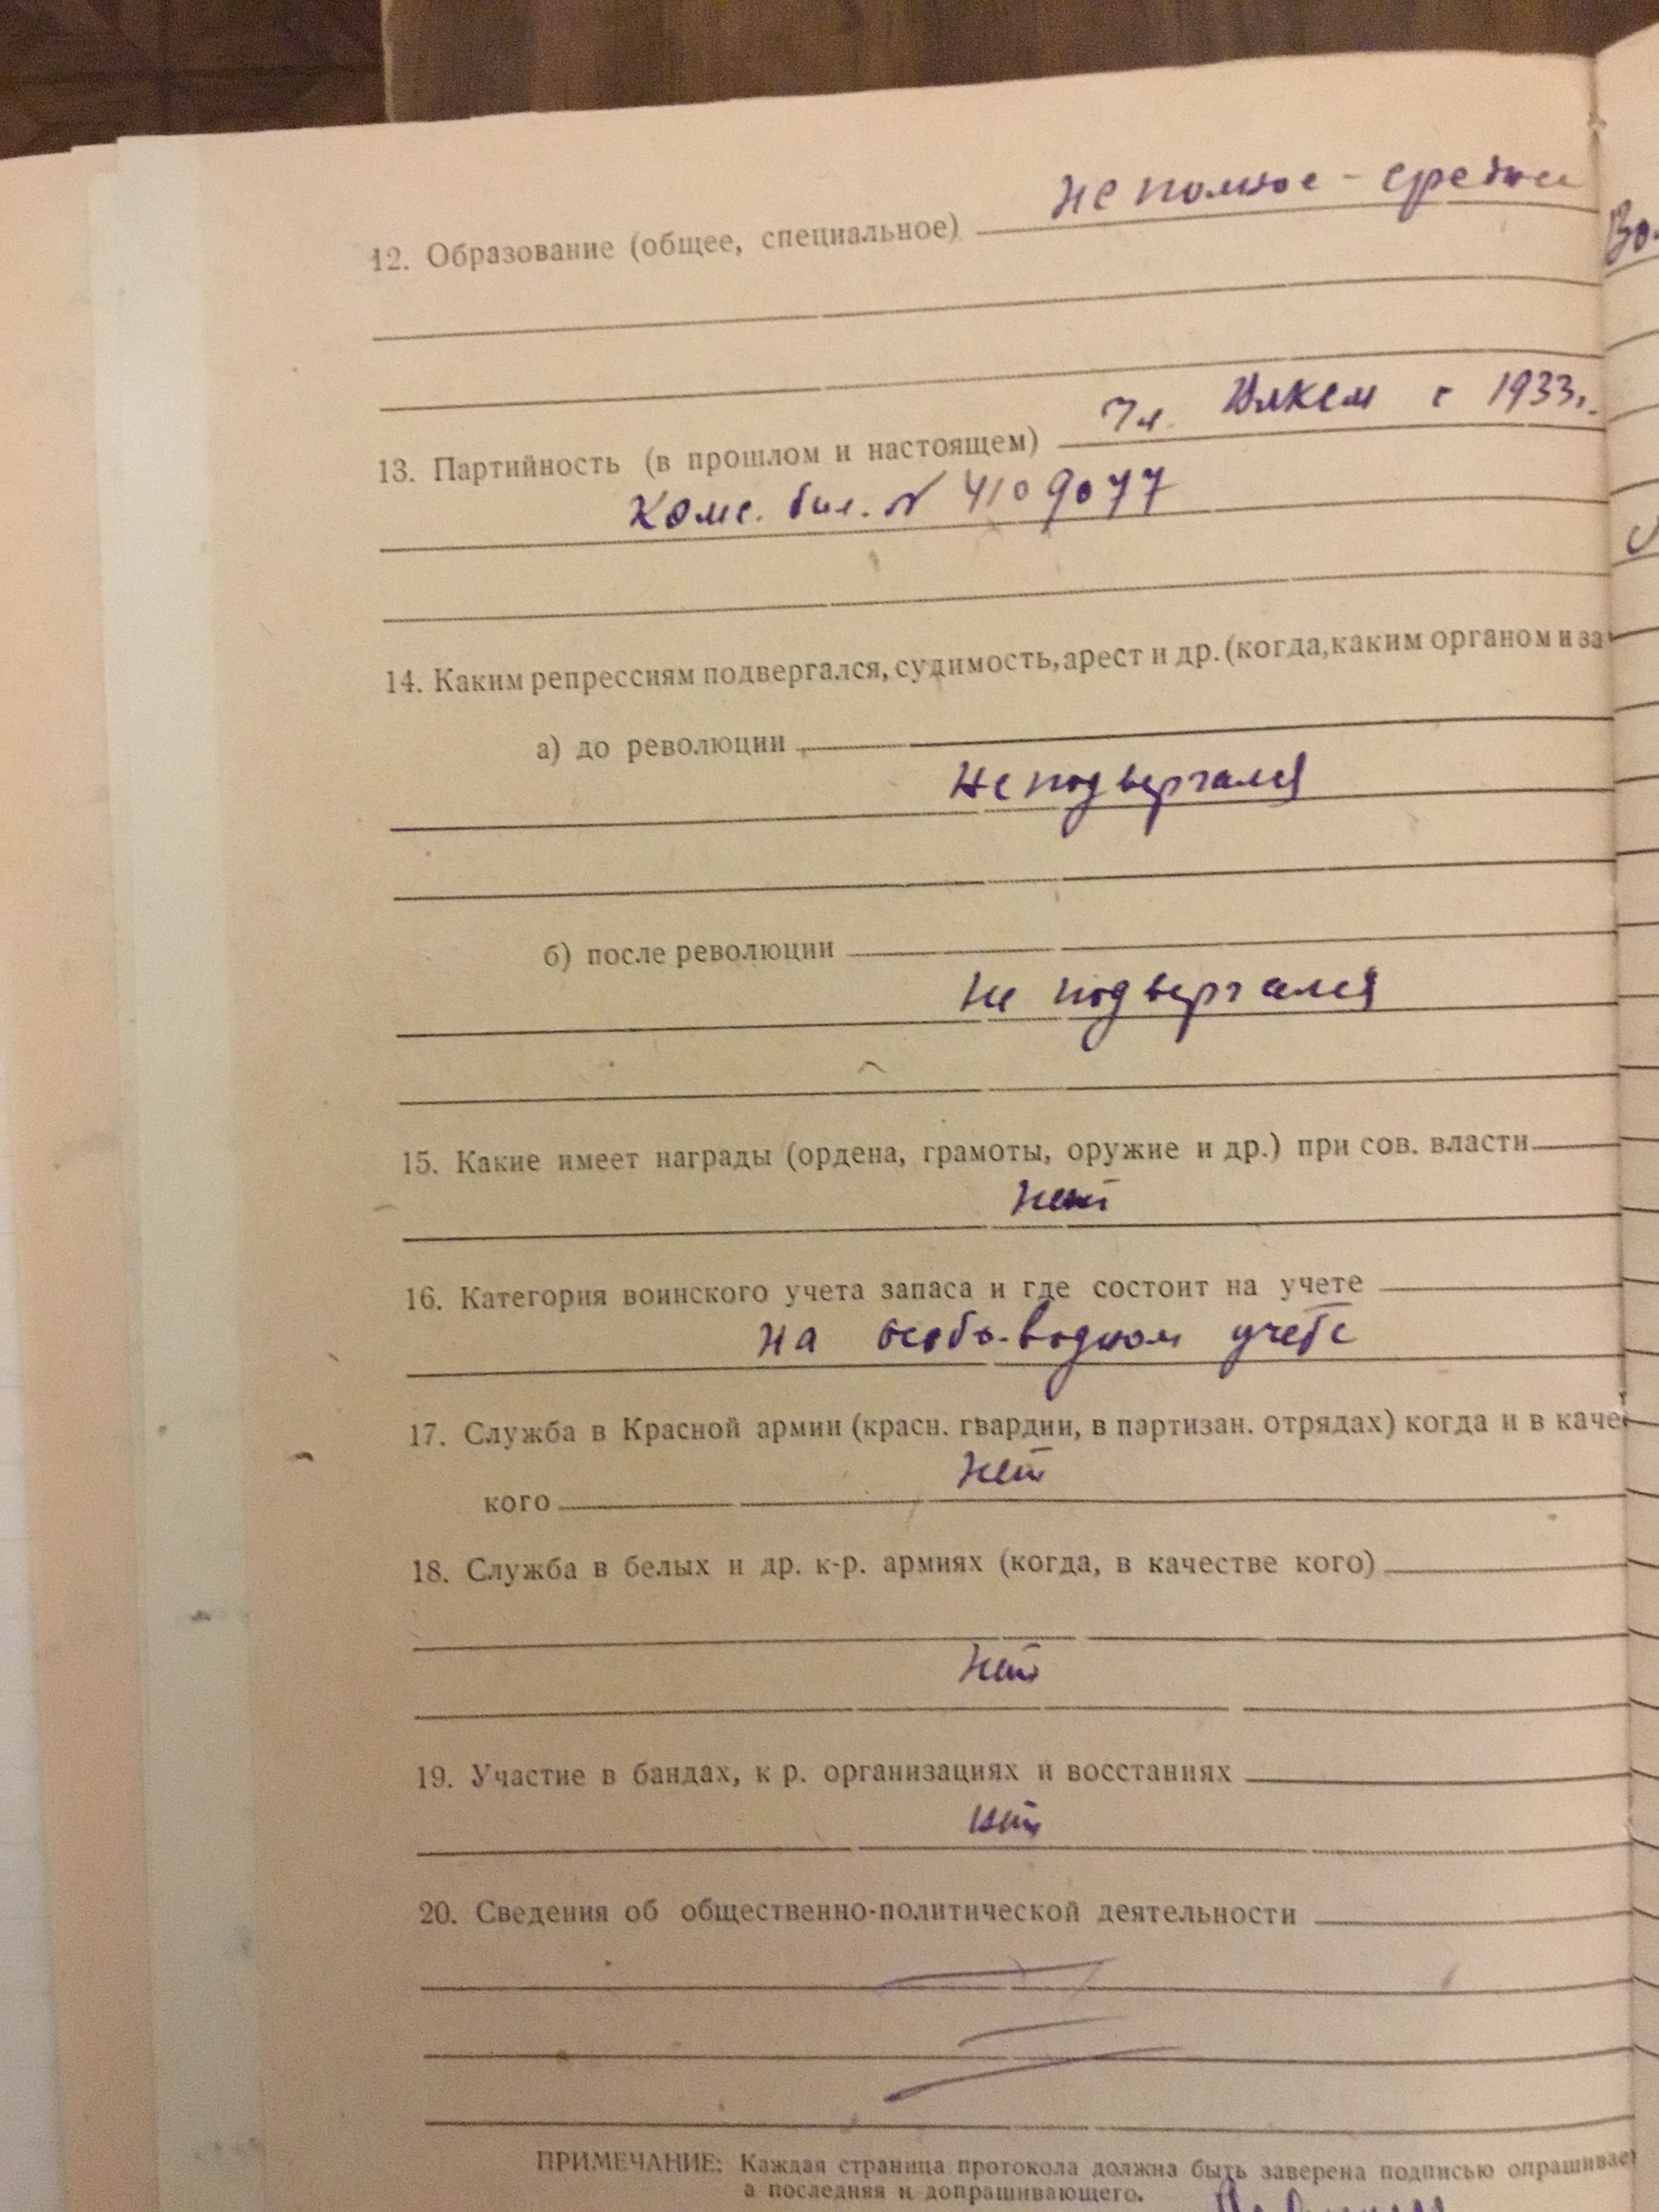 не полное - средн
12. Образование (общее, специальное)
чл. ВЛКСМ с 1933г.
13. Партийность (в прошлом и настоящем)
Комс. бил. № 4109077
14. Каким репрессиям подвергался, судимость, арест и др. (когда, каким органом и за
а) до революции
Не подвергался
б) после революции
Не подвергался
15. Какие имеет награды (ордена, грамоты, оружие и др.) при сов. власти
нет
16. Категория воинского учета запаса и где состоит на учете
на особо-водном учете
17. Служба в Красной армии (красн. гвардии, в партизан. отрядах) когда и в каче
нет
кого
18. Служба в белых и др. к-р. армиях (когда, в качестве кого)
нет
19. Участие в бандах, к р. организациях и восстаниях
нет
20. Сведения об общественно-политической деятельности
ПРИМЕЧАНИЕ: Каждая страница протокола должна быть заверена подписью опрашивае
а последняя и допрашивающего.